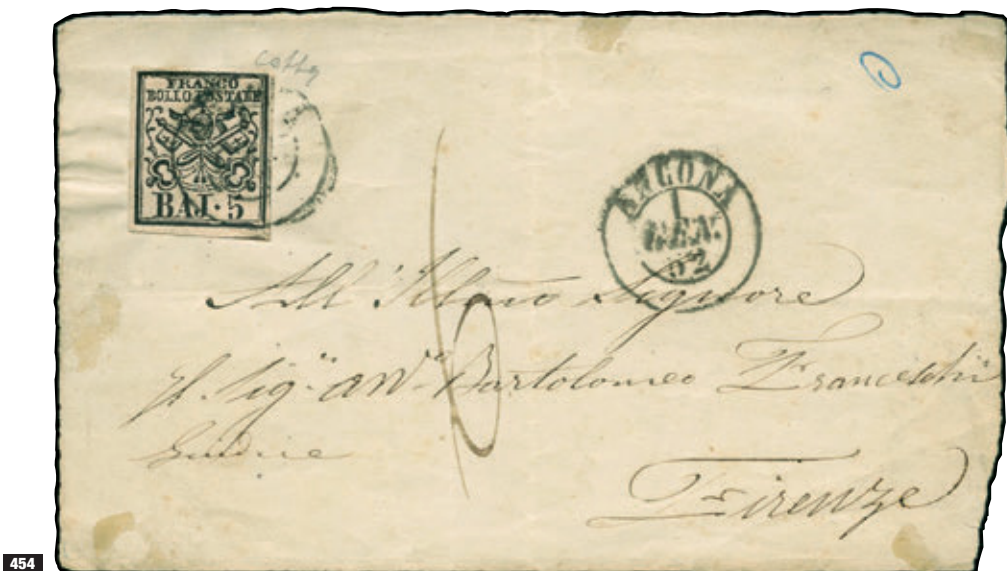 FRANCO
BOLLO POSTALE
BAJ·5
ANCONA
1
GEN.
62
All' Illmo Signore
Il Sigr Avv. Bartolomeo Franceschi
Giudice
Firenze
454